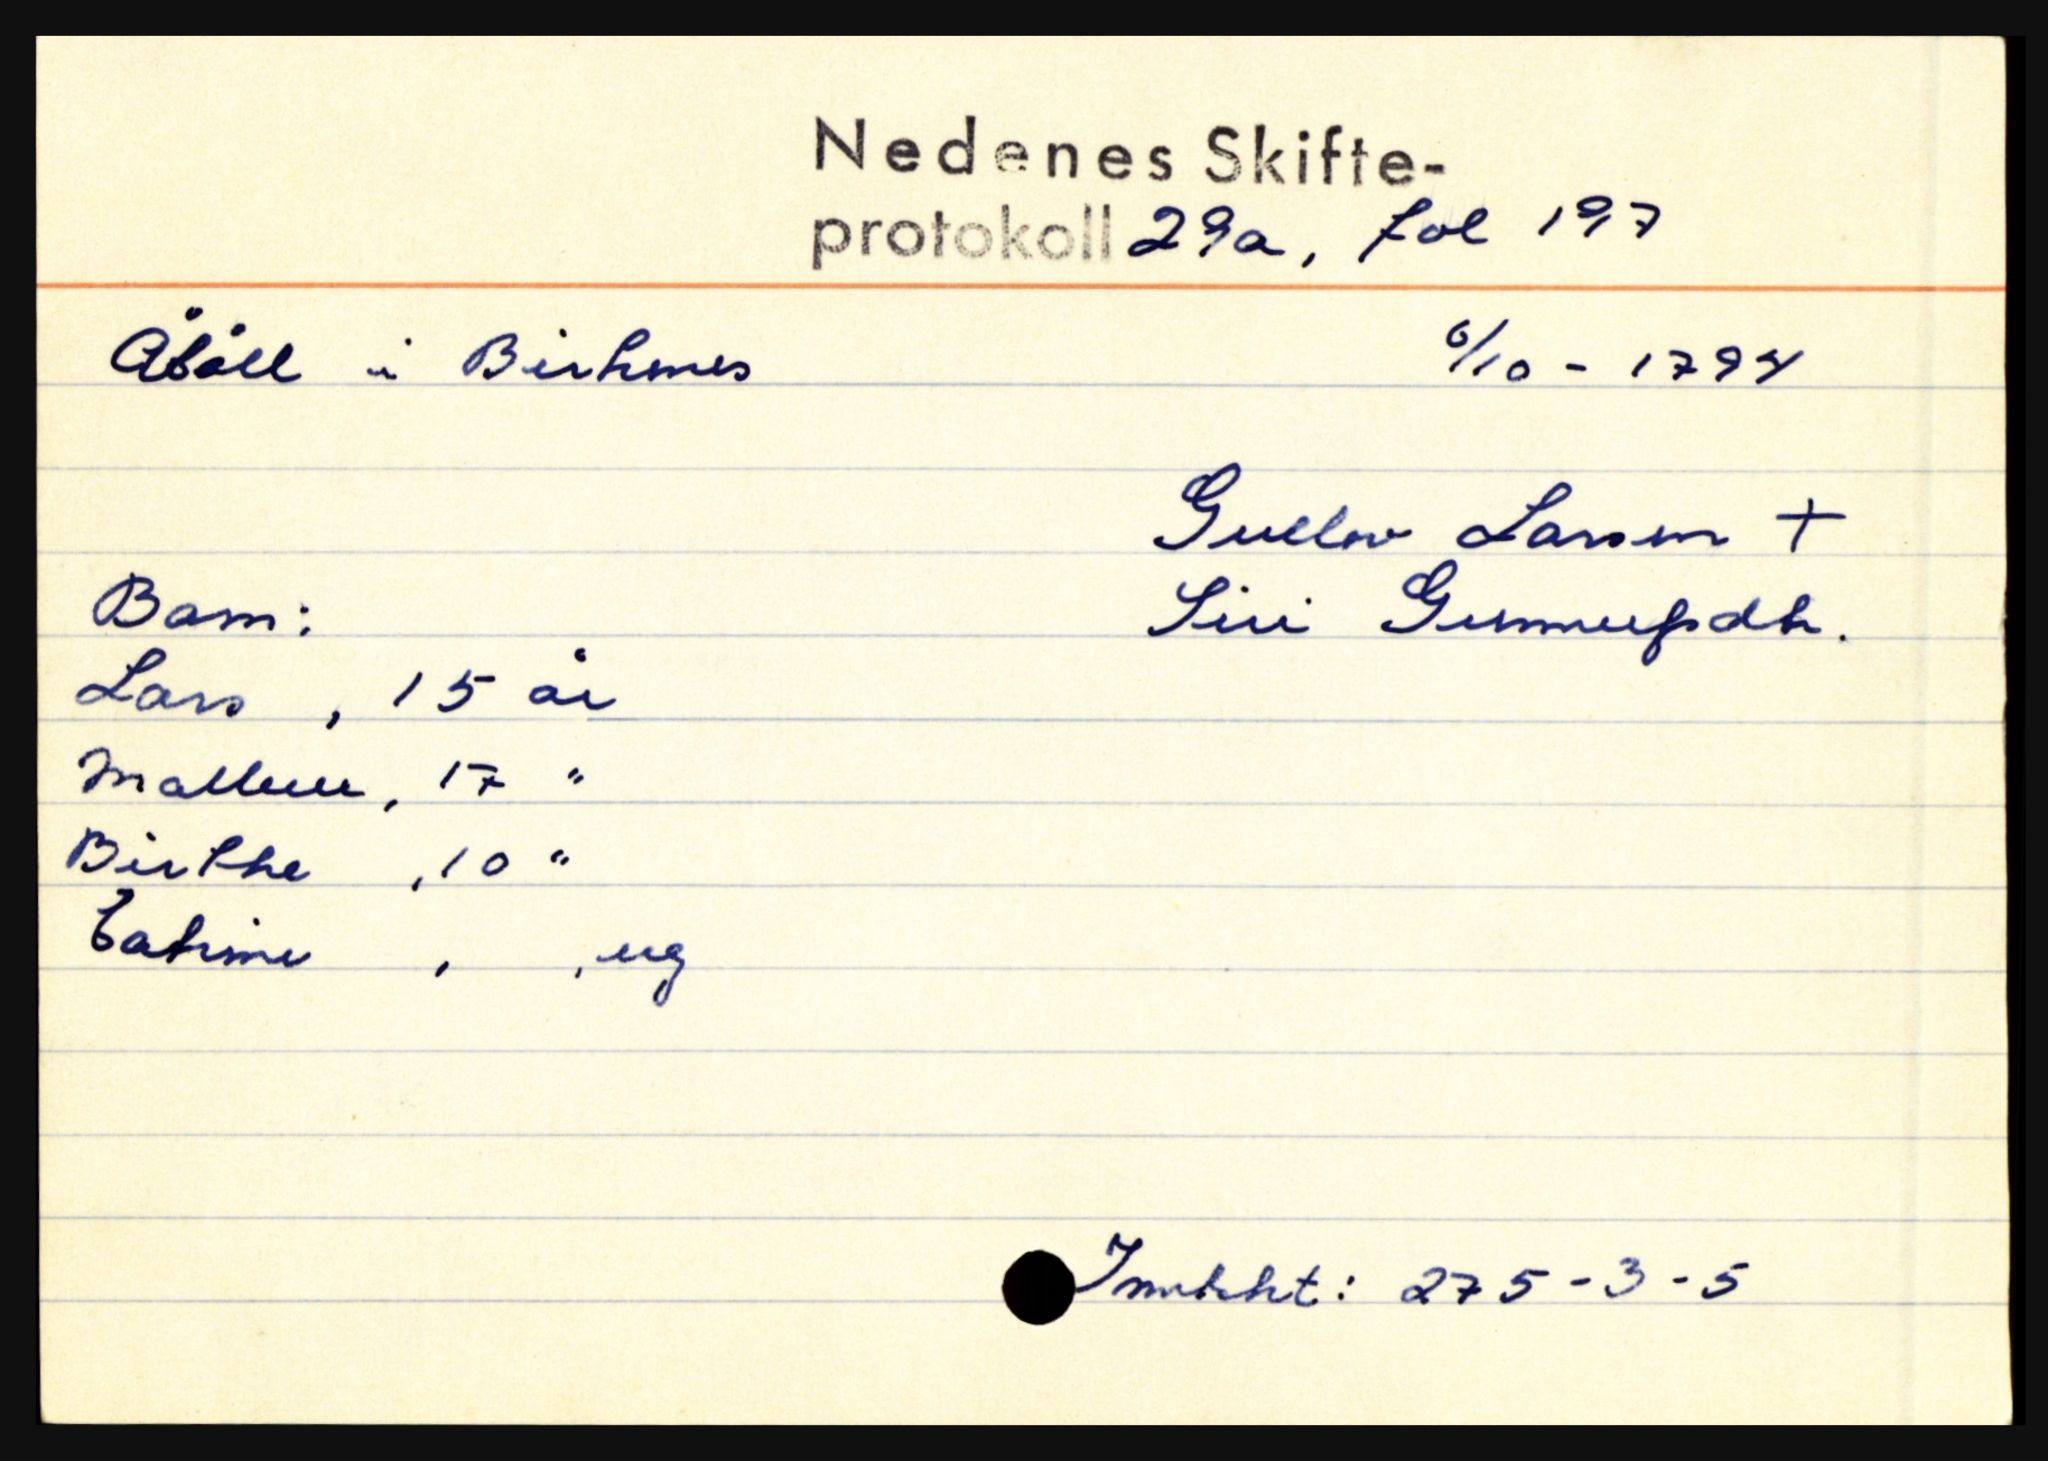 Nedenes Skifte-
protokoll 29a, fol 197
Åbåll i Birkenes 6/10 - 1794
Gullov Larsen +
Barn: Siri Gunnulfsdtr.
Lars , 15 år
Mallene, 17 "
Birthe , 10 "
Catrine , , ug
Inntekt: 275-3-5